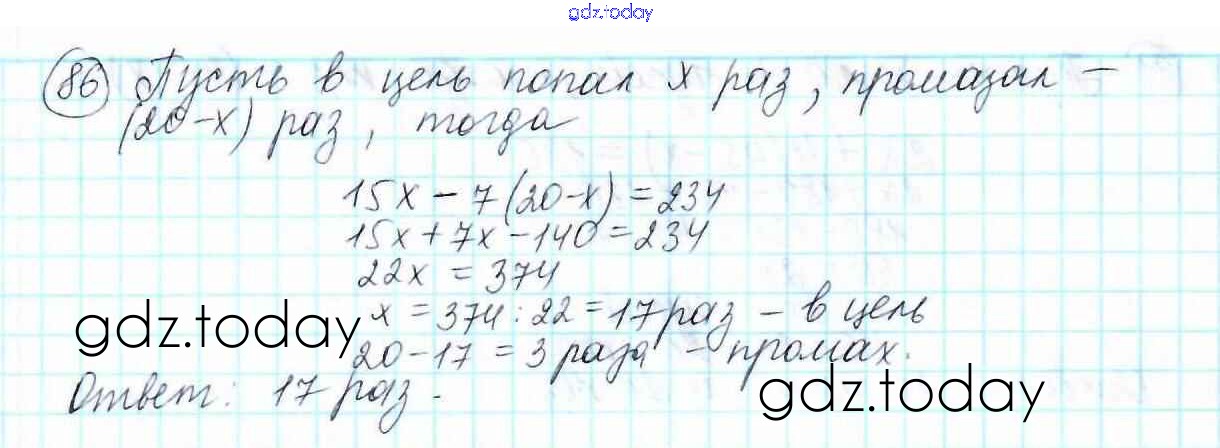 gdz.today
86 Пусть в цель попал x раз, промазал –
(20-x) раз, тогда
15x - 7(20-x) = 234
15x + 7x - 140 = 234
22x = 374
x = 374 : 22 = 17 раз - в цель
gdz.today
20 - 17 = 3 раза - промах.
gdz.today
Ответ: 17 раз.